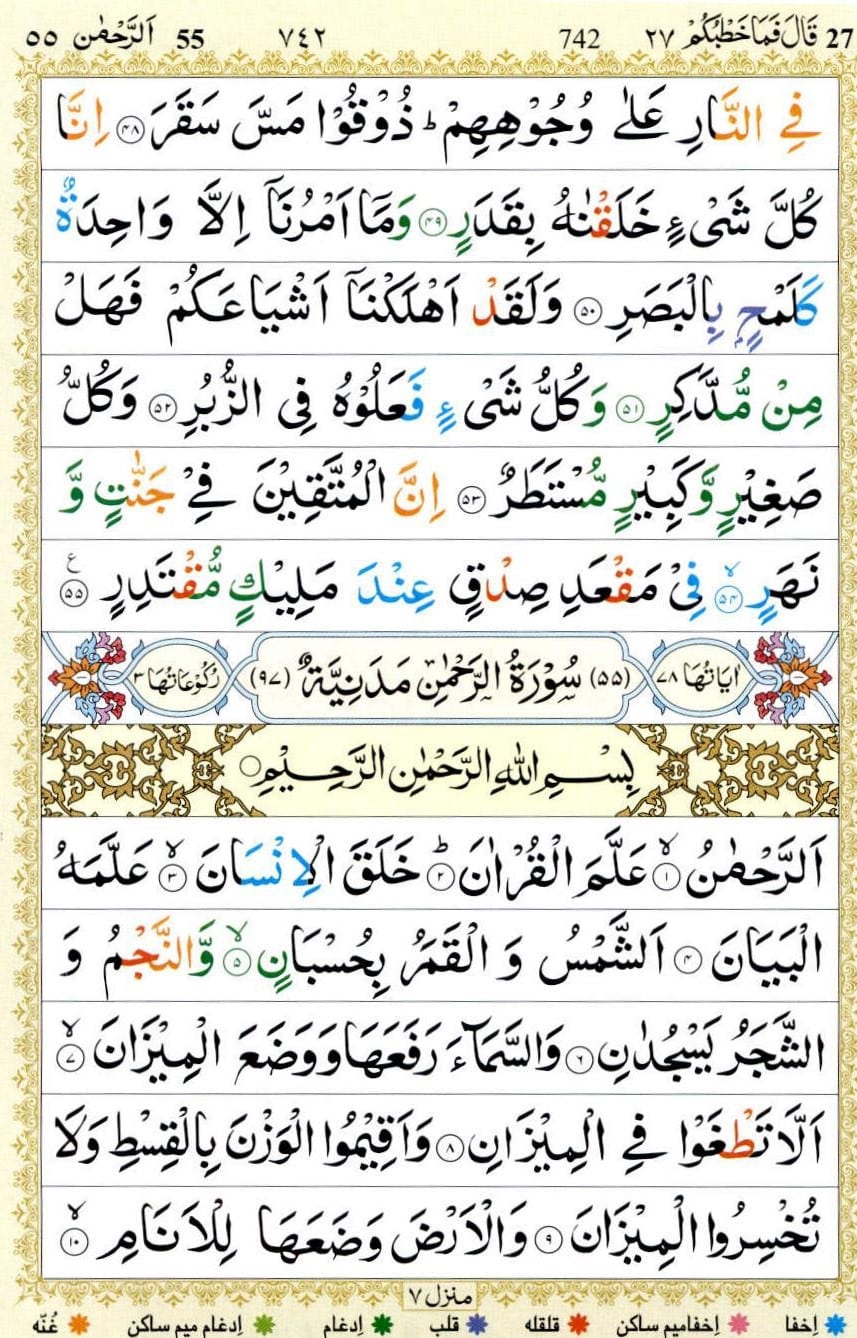 27 قَالَ فَمَا خَطْبُكُمْ ٢٧ 742 ٧٤٢ 55 اَلرَّحْمٰن ٥٥
فِي النَّارِ عَلٰى وُجُوْهِهِمْ ؕ ذُوْقُوْا مَسَّ سَقَرَ ۝۴۸ اِنَّا
كُلَّ شَيْءٍ خَلَقْنٰهُ بِقَدَرٍ ۝۴۹ وَمَاۤ اَمْرُنَاۤ اِلَّا وَاحِدَةٌ
كَلَمْحٍۭ بِالْبَصَرِ ۝۵۰ وَلَقَدْ اَهْلَكْنَاۤ اَشْيَاعَكُمْ فَهَلْ
مِنْ مُّدَّكِرٍ ۝۵۱ وَكُلُّ شَيْءٍ فَعَلُوْهُ فِي الزُّبُرِ ۝۵۲ وَكُلُّ
صَغِيْرٍ وَّكَبِيْرٍ مُّسْتَطَرٌ ۝۵۳ اِنَّ الْمُتَّقِيْنَ فِيْ جَنّٰتٍ وَّ
نَهَرٍ ۙ۝۵۴ فِيْ مَقْعَدِ صِدْقٍ عِنْدَ مَلِيْكٍ مُّقْتَدِرٍ ۝۵۵ ع
اٰيَاتُهَا ٧٨ (٥٥) سُوْرَةُ الرَّحْمٰنِ مَدَنِيَّةٌ (٩٧) رُكُوْعَاتُهَا ٣
بِسْمِ اللّٰهِ الرَّحْمٰنِ الرَّحِيْمِ ۝
اَلرَّحْمٰنُ ۙ۝۱ عَلَّمَ الْقُرْاٰنَ ؕ۝۲ خَلَقَ الْاِنْسَانَ ۙ۝۳ عَلَّمَهُ
الْبَيَانَ ۝۴ اَلشَّمْسُ وَ الْقَمَرُ بِحُسْبَانٍ ۙ۝۵ وَّالنَّجْمُ وَ
الشَّجَرُ يَسْجُدٰنِ ۝۶ وَالسَّمَآءَ رَفَعَهَا وَوَضَعَ الْمِيْزَانَ ۙ۝۷
اَلَّا تَطْغَوْا فِي الْمِيْزَانِ ۝۸ وَاَقِيْمُوا الْوَزْنَ بِالْقِسْطِ وَلَا
تُخْسِرُوا الْمِيْزَانَ ۝۹ وَالْاَرْضَ وَضَعَهَا لِلْاَنَامِ ۙ۝۱۰
منزل ٧
اِخفا اِخفامیم ساکن قلقله قلب اِدغام اِدغام میم ساکن غُنّه